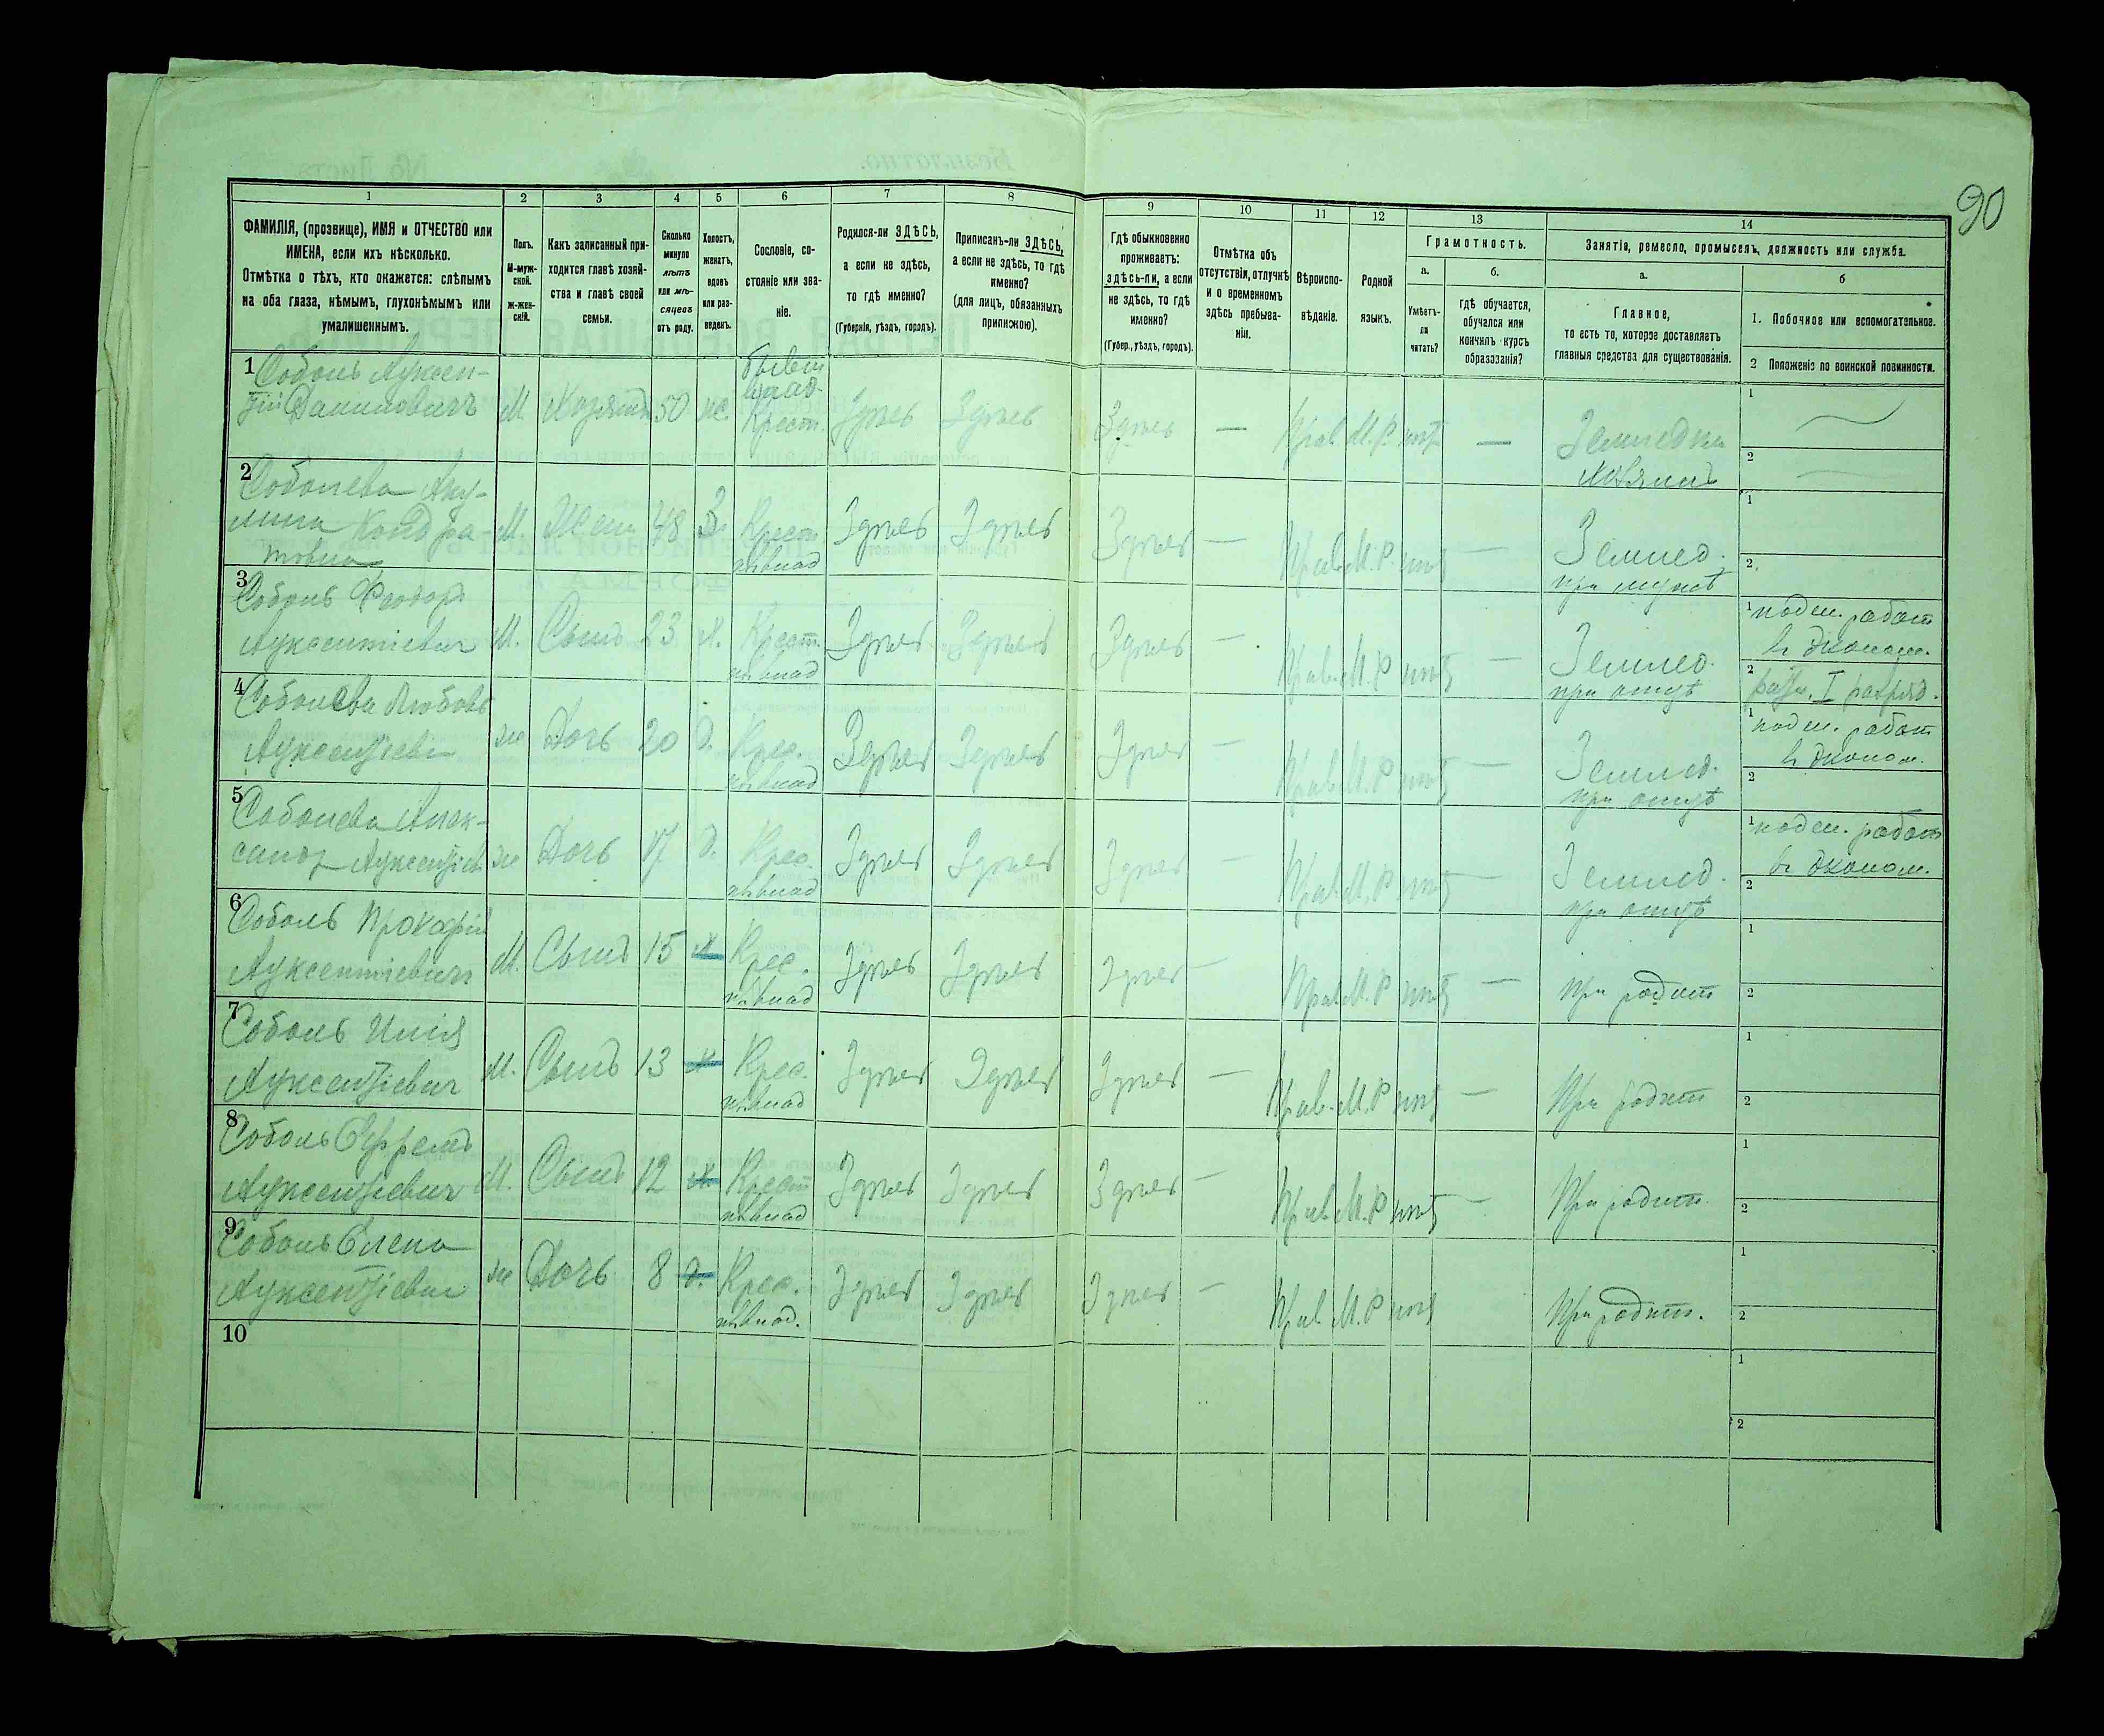 90
1 2 3 4 5 6 7 8 9 10 11 12 13 14
ФАМИЛІЯ, (прозвище), ИМЯ и ОТЧЕСТВО или
ИМЕНА, если ихъ нѣсколько.
Отмѣтка о тѣхъ, кто окажется: слѣпымъ
на оба глаза, нѣмымъ, глухонѣмымъ или
умалишеннымъ.
Полъ.
М-муж-
ской.
ж-жен-
скій.
Какъ записанный при-
ходится главѣ хозяй-
ства и главѣ своей
семьи.
Сколько
минуло
лѣтъ
или мѣ-
сяцевъ
отъ роду.
Холостъ,
женатъ,
вдовъ
или раз-
веденъ.
Сословіе, со-
стояніе или зва-
ніе.
Родился-ли ЗДѢСЬ,
а если не здѣсь,
то гдѣ именно?
(Губернія, уѣздъ, городъ).
Приписанъ-ли ЗДѢСЬ,
а если не здѣсь, то гдѣ
именно?
(для лицъ, обязанныхъ
припискою).
Гдѣ обыкновенно
проживаетъ:
здѣсь-ли, а если
не здѣсь, то гдѣ
именно?
(Губер., уѣздъ, городъ).
Отмѣтка объ
отсутствіи, отлучкѣ
и о временномъ
здѣсь пребыва-
ніи.
Вѣроиспо-
вѣданіе.
Родной
языкъ.
Грамотность.
а.
Умѣетъ-
ли
читать?
б.
гдѣ обучается,
обучался или
кончилъ курсъ
образованія?
Занятіе, ремесло, промыселъ, должность или служба.
а.
Главное,
то есть то, которое доставляетъ
главныя средства для существованія.
б
1. Побочное или вспомогательное.
2 Положеніе по воинской повинности.
1 Соболь Луксен-
тій Даниловичъ М Хозяинъ 50 бывш влад Крест. Здѣсь Здѣсь Здѣсь — Прав М.Р. нѣт — Земледѣл
хозяинъ
1
2
2 Соболева Аку-
лина Кондра-
товна М. Жена 48 З. Крест. Здѣсь Здѣсь Здѣсь — Прав М.Р. нѣт — Землед.
при мужѣ
1
2
3 Соболь Феодоръ
Луксентіевич М. Сынъ 23 Х. Крест. Здѣсь Здѣсь Здѣсь — Прав М.Р нѣт — Землед.
при отцѣ
1 поден. работ
въ эконом.
2 ратн. I разряд.
4 Соболева Любовь
Луксентіев ж Дочь 20 д. Крес. Здѣсь Здѣсь Здѣсь — Прав М.Р нѣт — Землед.
при отцѣ
1 поден. работ
въ эконом.
2
5 Соболева Алек-
санд Луксентіев ж Дочь 17 д. Крес. Здѣсь Здѣсь Здѣсь — Прав М.Р нѣт — Землед.
при отцѣ
1 поден. работ
въ эконом.
2
6 Соболь Прокофій
Луксентіевичъ М. Сынъ 15 х Крес. Здѣсь Здѣсь Здѣсь — Прав М.Р нѣт — При родит
1
2
7 Соболь Илія
Луксентіевич М. Сынъ 13 х Крес. Здѣсь Здѣсь Здѣсь — Прав. М.Р нѣт — При родит
1
2
8 Соболь Ефремъ
Луксентіевич М. Сынъ 12 х Крест Здѣсь Здѣсь Здѣсь — Прав. М.Р нѣт — При родит.
1
2
9 Соболь Елена
Луксентіевна ж Дочь 8 д. Крес. Здѣсь Здѣсь Здѣсь — Прав М.Р нѣт При родит.
1
2
10
1
2